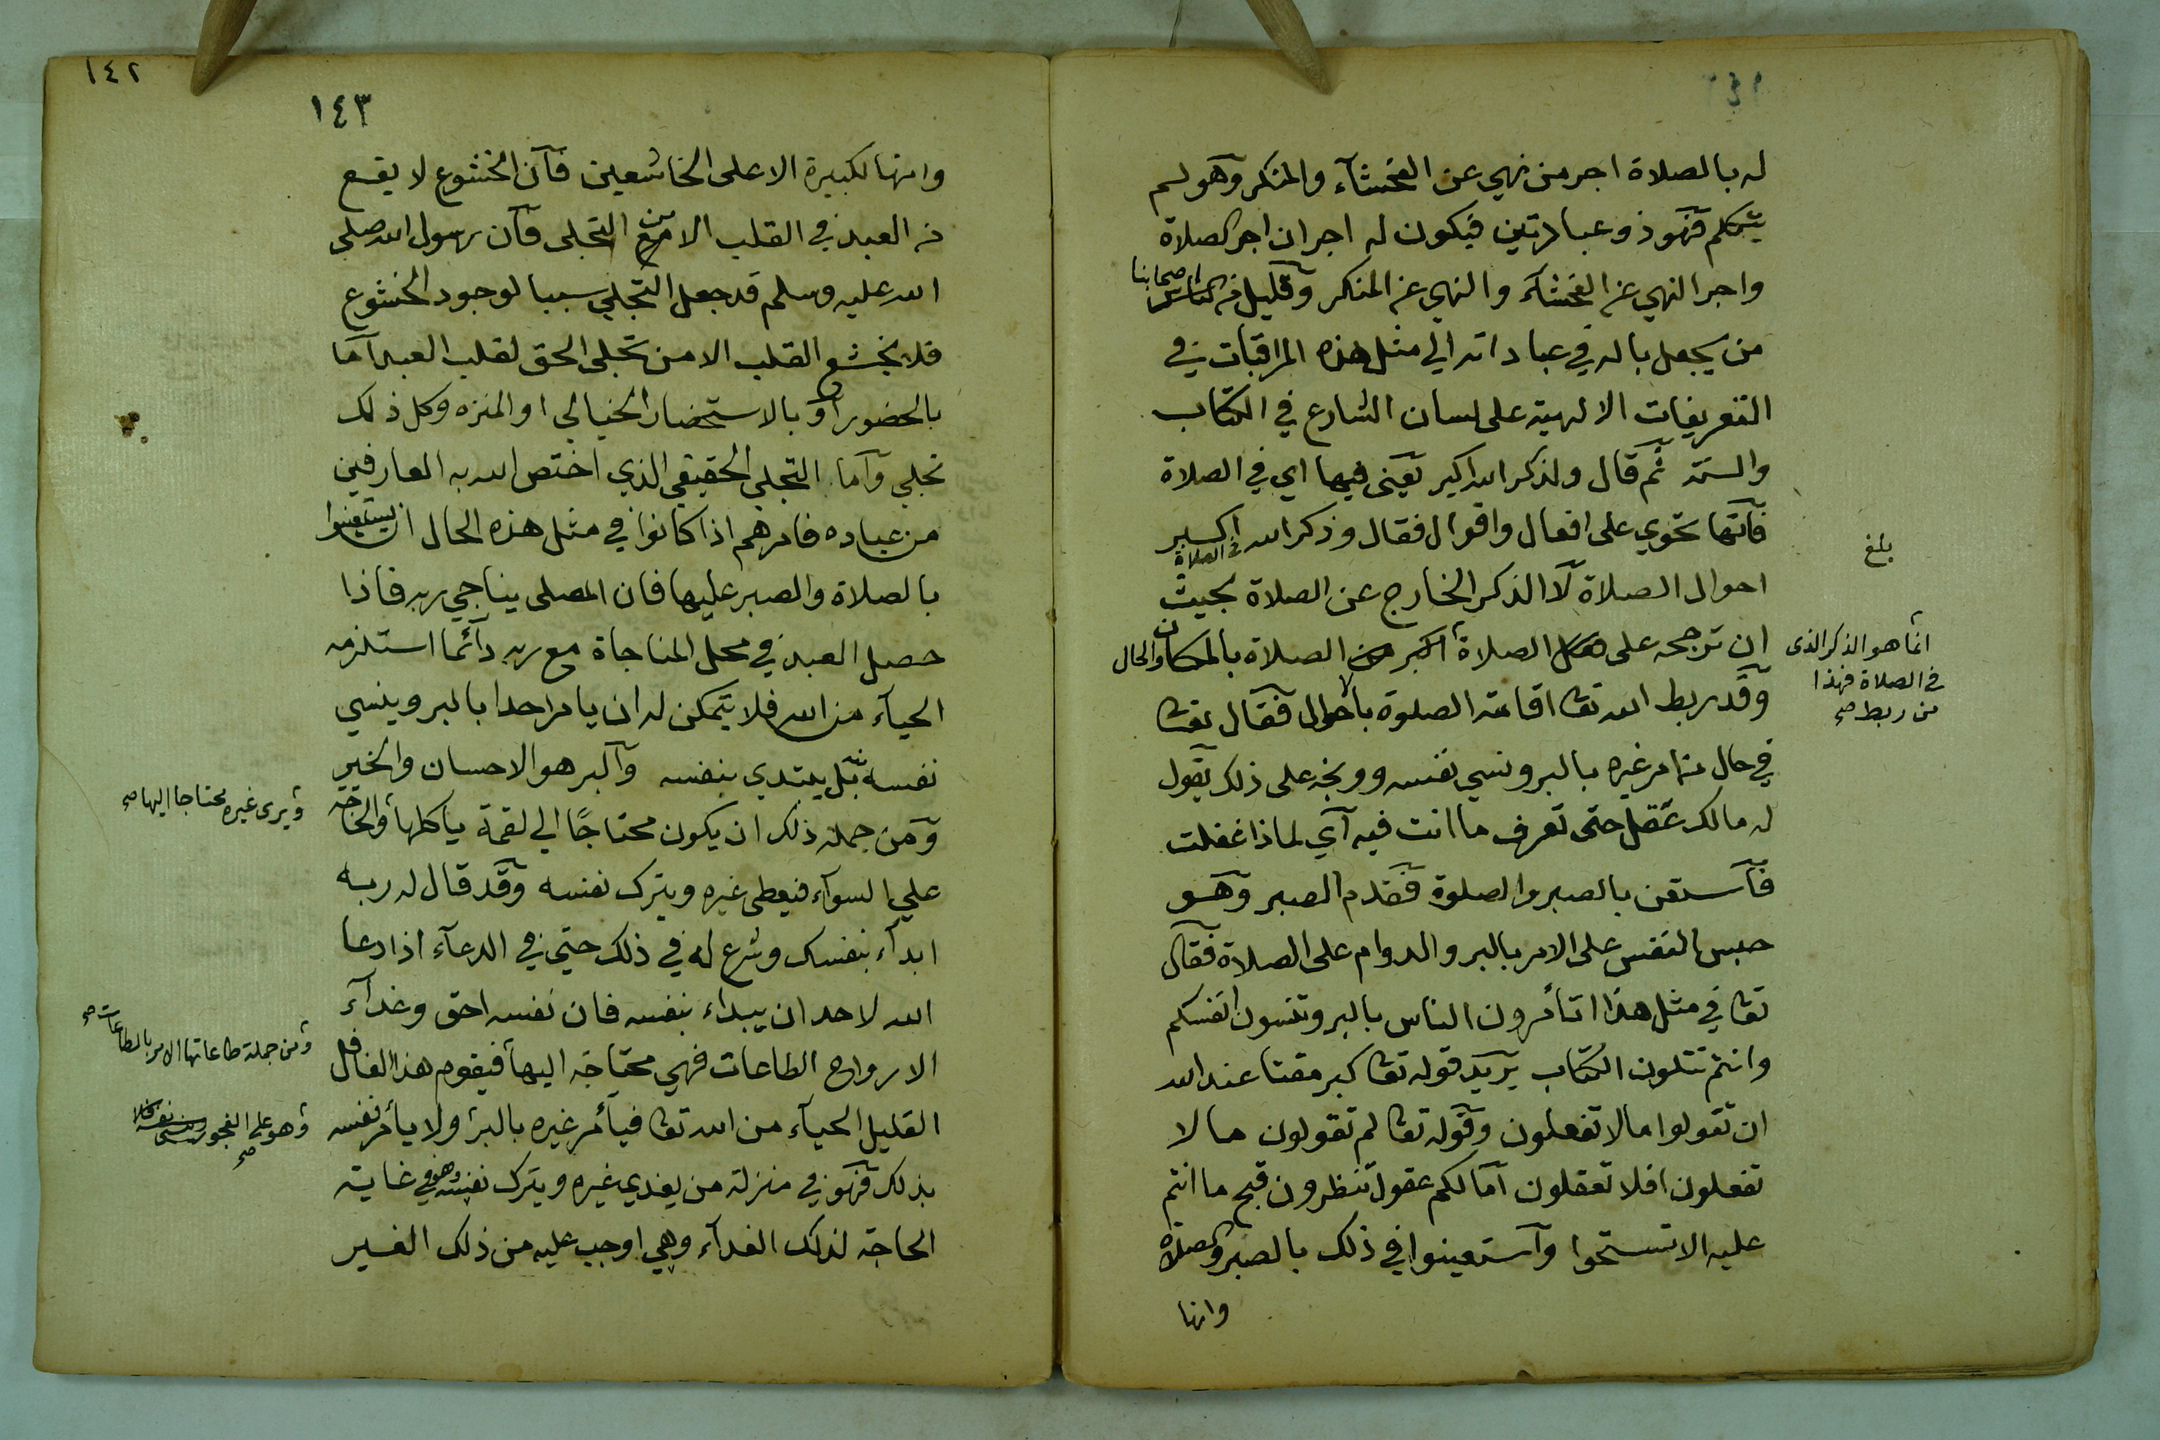 له بالصلاة اجر من نهي عن الفحشآء والمنكر وهو لم
يتكلم فهو ذو عبادتين فيكون له اجران اجر الصلاة
واجر النهي عن الفحشآء والنهي عن المنكر وقليل من اصحابنا
من يجعل باله في عباداته الي مثل هذه المراقبات في
التعريفات الالهية على لسان الشارع في الكتاب
والسنة ثم قال ولذكر الله اكبر يعني فيها اي في الصلاة
فانها تحوي على افعال واقوال فقال وذكر الله في الصلاة اكبر
احوال الصلاة لا الذكر الخارج عن الصلاة بحيث
ان ترجحه على الصلاة انما هو الذكر الذى
في الصلاة فهذا
من ربط صح
الصلاة بالمكان والحال
بلغ
وقد ربط الله تعا اقامة الصلوة باحوال فقال تعا
في حال من امر غيره بالبر ونسي نفسه ووبخه على ذلك يقول
له مالك عقل حتى تعرف ما انت فيه آي لماذا غفلت
فآستعن بالصبر والصلوة فقدم الصبر وهو
حبس النفس على الامر بالبر والدوام على الصلاة فقال
تعا في مثل هذا اتأمرون الناس بالبر وتنسون انفسكم
وانتم تتلون الكتاب يريد قوله تعا كبر مقتا عند الله
ان تقولوا ما لا تفعلون وقوله تعا لم تقولون ما لا
تفعلون افلا تعقلون آما لكم عقول تنظرون قبح ما انتم
عليه الا تستحوا وآستعينوا في ذلك بالصبر والصلاة
وانها
١٤٢
١٤٣
وانها لكبيرة الا على الخاشعين فآن الخشوع لا يقع
من العبد في القلب الا من التجلى فآن رسول الله صلى
الله عليه وسلم قد جعل التجلي سببا لوجود الخشوع
فلا يخشع القلب الا من تجلى الحق لقلب العبد آما
بالحضور آو بالاستحضار الخيالي او المنزه وكل ذلك
تجلي وآما التجلي الحقيقي الذي اختص الله به العارفين
من عباده فامرهم اذا كانوا في مثل هذه الحال ان يستعينوا
بالصلاة والصبر عليها فان المصلى يناجي ربه فاذا
حصل العبد في محل المناجاة مع ربه دآئما استلزمه
الحيآء من الله فلا يتمكن له ان يامر احدا بالبر وينسي
نفسه بل يبتدي بنفسه وآلبر هو الاحسان والخير
ومن جملة ذلك ان يكون محتاجًا الي لقمة ياكلها ويرى غيره محتاجا اليها صح والحاجة
على السوآء فيعطى غيره ويترك نفسه وقد قال له ربه
ابدآء بنفسك وشرع له في ذلك حتي في الدعآء اذا دعا
الله لاحد ان يبداء بنفسه فان نفسه احق وغدآء
الارواح الطاعات فهي محتاجة اليها ومن جملة طاعاتها الامر بالطاعات صح فيقوم هذا الغافل
القليل الحيآء من الله تعا فيأمر غيره بالبر وهو على الفجور صح ولا يأمر نفسه
بذلك فهو في منزلة من يغذي غيره ويترك نفسه وهو في غاية
الحاجة لذاك الغدآء وهي اوجب عليه من ذلك الغير